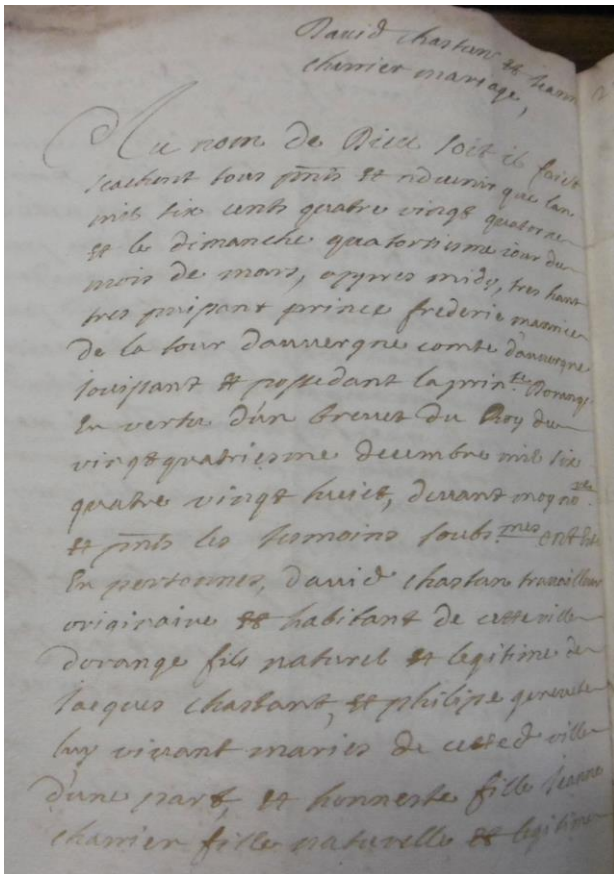 David chastan et Jeanne
charrier mariage,
Au nom de Dieu soit il faict
scachent tous pnts et advenir que lan
mil six cents quatre vingt quatorze
et le dimanche quatorsiesme iour du
mois de mars, appres midy, tres haut
tres puissant prince frederic maurice
de la tour dauvergne comte dauvergne
iouissant et possedant la prin.té dorange
En vertu dun brevet du Roy du
vingtquatriesme decembre mil six
quatre vingt huict, devant moy no.re
et pnts les tesmoins soubs.nes
En personnes, david chastan travailleur
originaire et habitant de cette ville
dorange fils naturel et legitime de
Jacques chastant, et philipe
luy vivant maries de cetted ville
d'une part, et honneste fille Jeanne
charrier fille naturelle et legitime